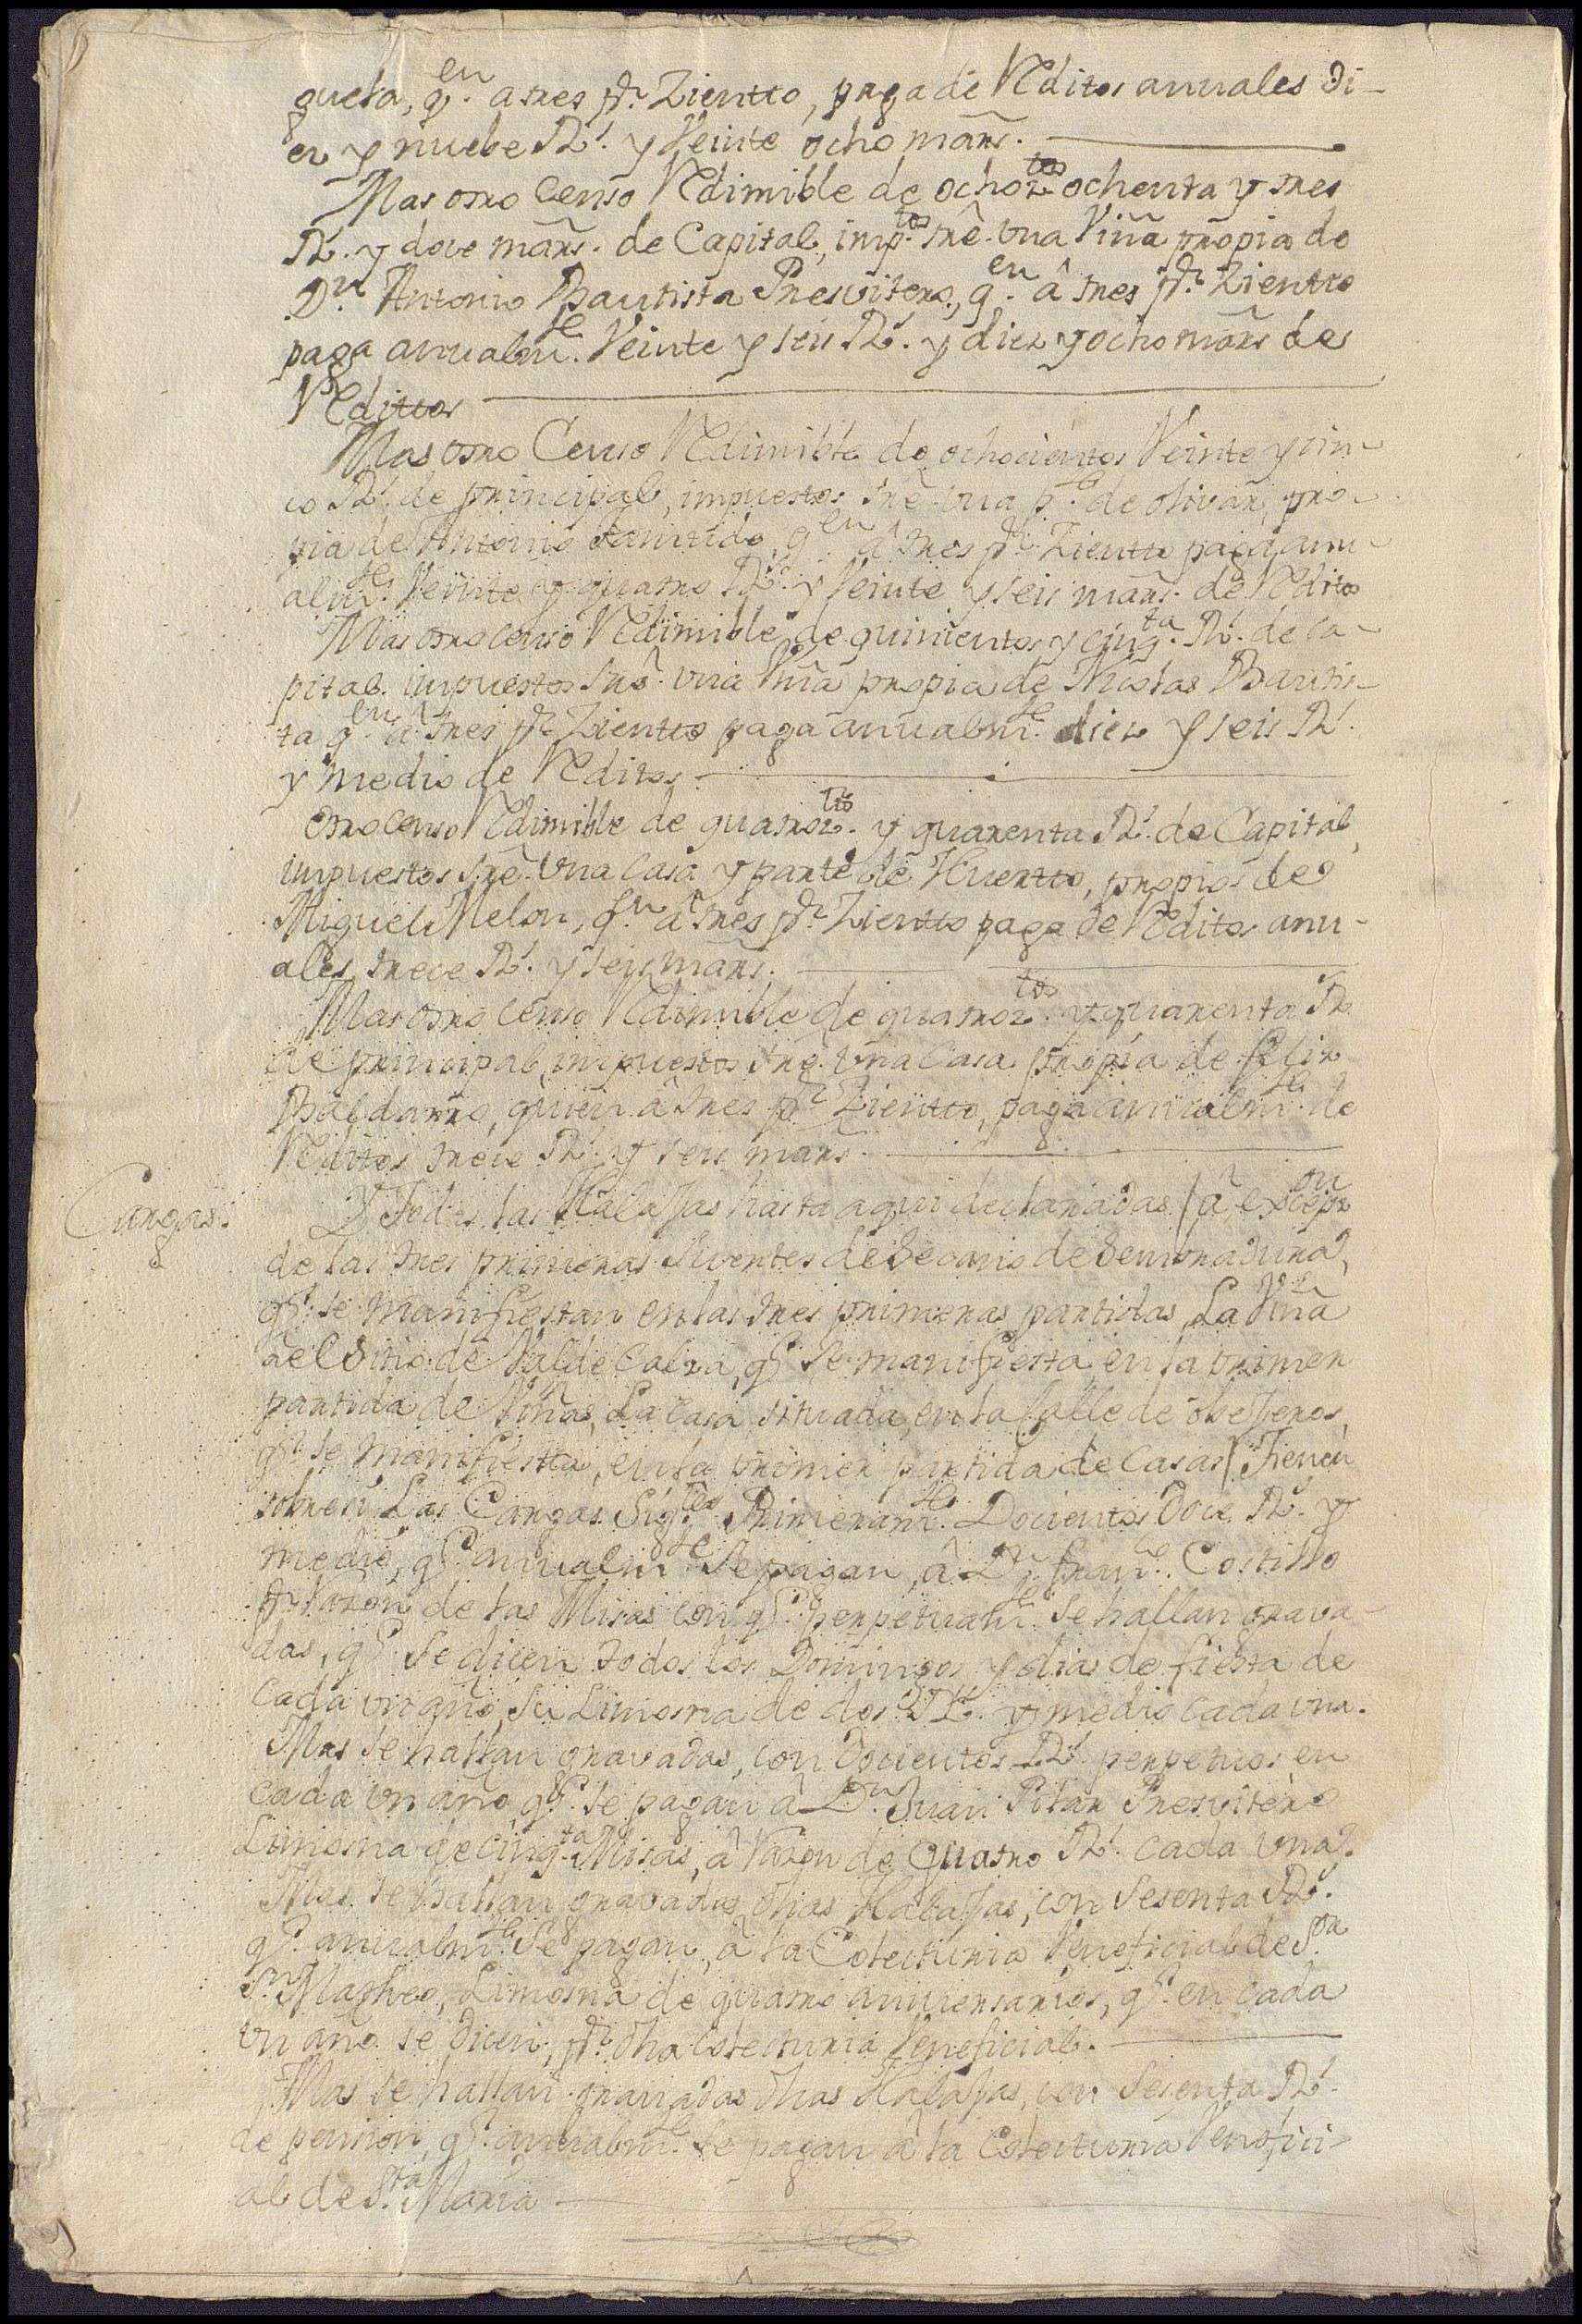 gueta, q.en a tres pr. Ziento, paga de Reditos anuales Di-
ez y nuebe Rs. y Veinte ocho mars.
Mas otro Censo Redimible de ochoz.tos ochenta y tres
Rs. y doce mars. de Capital, imp.tos sre. vna Viña propia de
Dn. Antonio Bautista Presvitero, q.en â tres pr. Ziento
paga anualm.te Veinte y seis Rs. y diez y ocho mars de
Reditos
Mas otro Censo Redimible de ochocientos Veinte y cin-
co Rs. de principal, impuestos sre. vna p.te de olivar, pro-
pia de Antonio q.en â tres pr. Ziento paga anu-
alm.te Veinte y quatro Rs. y Veinte y seis mars. de Reditos
Mas otro censo Redimible de quinientos y cinq.ta Rs. de ca-
pital impuestos sre. vna Viña propia de Nicolas Bautis-
ta q.en â tres pr. Ziento paga anualm.te diez y seis Rs.
y medio de Reditos
Otro censo Redimible de quatroz.tos y quarenta Rs. de Capital,
impuestos sre. vna Casa y parte de Huerto, propios de
Miguel Melon, q.n â tres pr. Ziento paga de Reditos anu-
ales, trece Rs. y seis mars.
Mas otro Censo Redimible de quatroz.tos y quarenta Rs.
de principal, impuestos sre. vna Casa propia de Felix
Baldarro, quien â tres pr. Ziento, paga anualm.te de
Reditos trece Rs. y seis mars.
Cargas.
Y Todas las Halajas hasta aqui declaradas (â excep.on
de las tres primeras Suertes de Secano de Sembradura,
q.e se manifiestan en las tres primeras partidas, La Viña
âel Sitio de Valde Cabra, q.e se manifiesta en la primer
partida de Viñas, La Casa situada, en la Calle de obejeros,
q.e se manifiesta, en la primer partida de Casas) Tienen
sobre si Las Cargas Sig.tes Primeram.te Docientos Doce Rs. y
medio, q.e anualm.te Se pagan, â Dn. Fran.co Costillo
pr. razon de las Misas con q.e perpetuam.te se hallan grava-
das, q.e Se dicen todos los Domingos y dias de fiesta de
cada vn año, Su Limosna de dos Rs. y medio cada vna.
Mas se hallan gravadas, con Docientos Rs. perpetuos en
cada vn año q.e se pagan â Dn. Juan Pitar Presvitero
Limosna de cinq.ta Misas, â razon de quatro Rs. cada vna.
Mas se hallan gravadas dhas Halajas, con Sesenta Rs.
q.e anualm.te Se pagan, â la Colecturia Veneficial de S.or
Sn. Matheo, Limosna de quatro aniversarios, q.e en cada
vn año se dicen, pr. dha Colecturia Veneficial.
Mas se hallan gravadas dhas Halajas, con Sesenta Rs.
de pension, q.e anualm.te se pagan â la Colecturia Venefici-
al de S.ta Maria